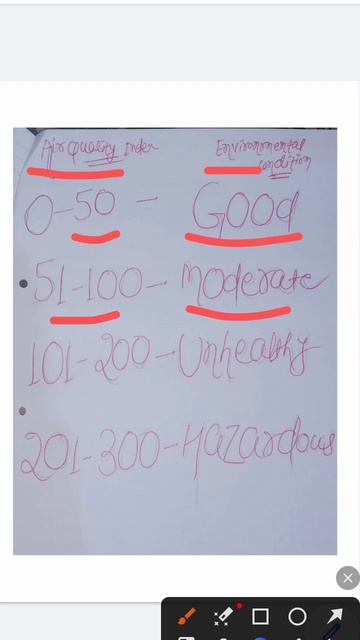 Air quality Index
Environmental condition
0-50 - Good
51-100 - Moderate
101-200 - Unhealthy
201-300 - Hazardous